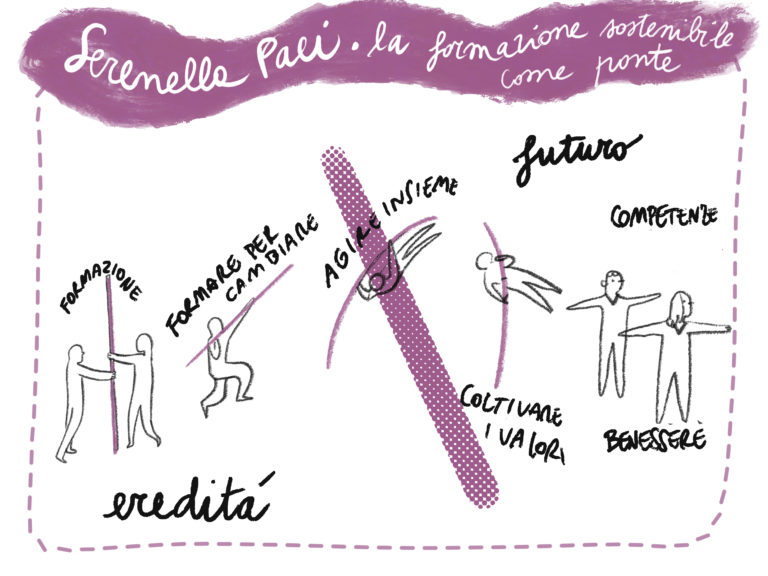 Serenella Paci. la formazione sostenibile
come ponte
futuro
COMPETENZE
AGIRE INSIEME
FORMARE PER
CAMBIARE
FORMAZIONE
COLTIVARE
I VALORI
BENESSERE
ereditá